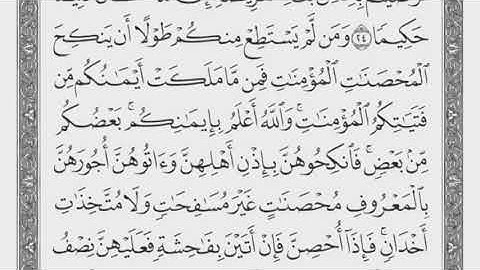 حَكِيمًا ﴿٢٤﴾ وَمَن لَّمْ يَسْتَطِعْ مِنكُمْ طَوْلًا أَن يَنكِحَ
ٱلْمُحْصَنَٰتِ ٱلْمُؤْمِنَٰتِ فَمِن مَّا مَلَكَتْ أَيْمَٰنُكُم مِّن
فَتَيَٰتِكُمُ ٱلْمُؤْمِنَٰتِ ۚ وَٱللَّهُ أَعْلَمُ بِإِيمَٰنِكُم ۚ بَعْضُكُم
مِّنۢ بَعْضٍ ۚ فَٱنكِحُوهُنَّ بِإِذْنِ أَهْلِهِنَّ وَءَاتُوهُنَّ أُجُورَهُنَّ
بِٱلْمَعْرُوفِ مُحْصَنَٰتٍ غَيْرَ مُسَٰفِحَٰتٍ وَلَا مُتَّخِذَٰتِ
أَخْدَانٍ ۚ فَإِذَآ أُحْصِنَّ فَإِنْ أَتَيْنَ بِفَٰحِشَةٍ فَعَلَيْهِنَّ نِصْفُ